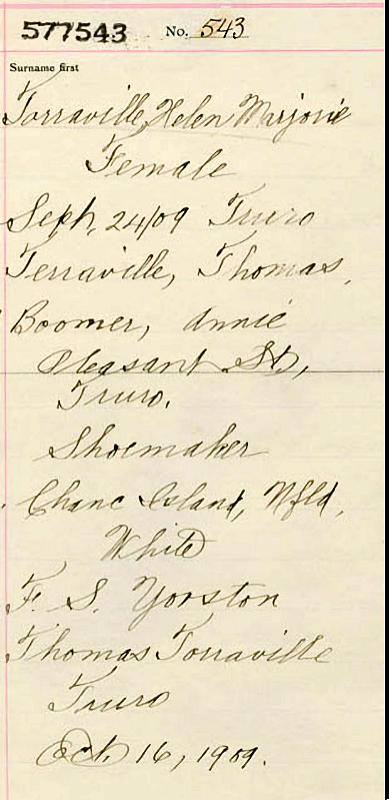 577543 No. 543
Surname first
Torraville, Helen Marjorie
Female
Sept. 24/09 Truro
Terraville, Thomas,
Boomer, Annie
Pleasant St,
Truro.
Shoemaker
Chanc Island, Nfld,
White
F. S. Yorston
Thomas Torraville
Truro
Oct. 16, 1909.